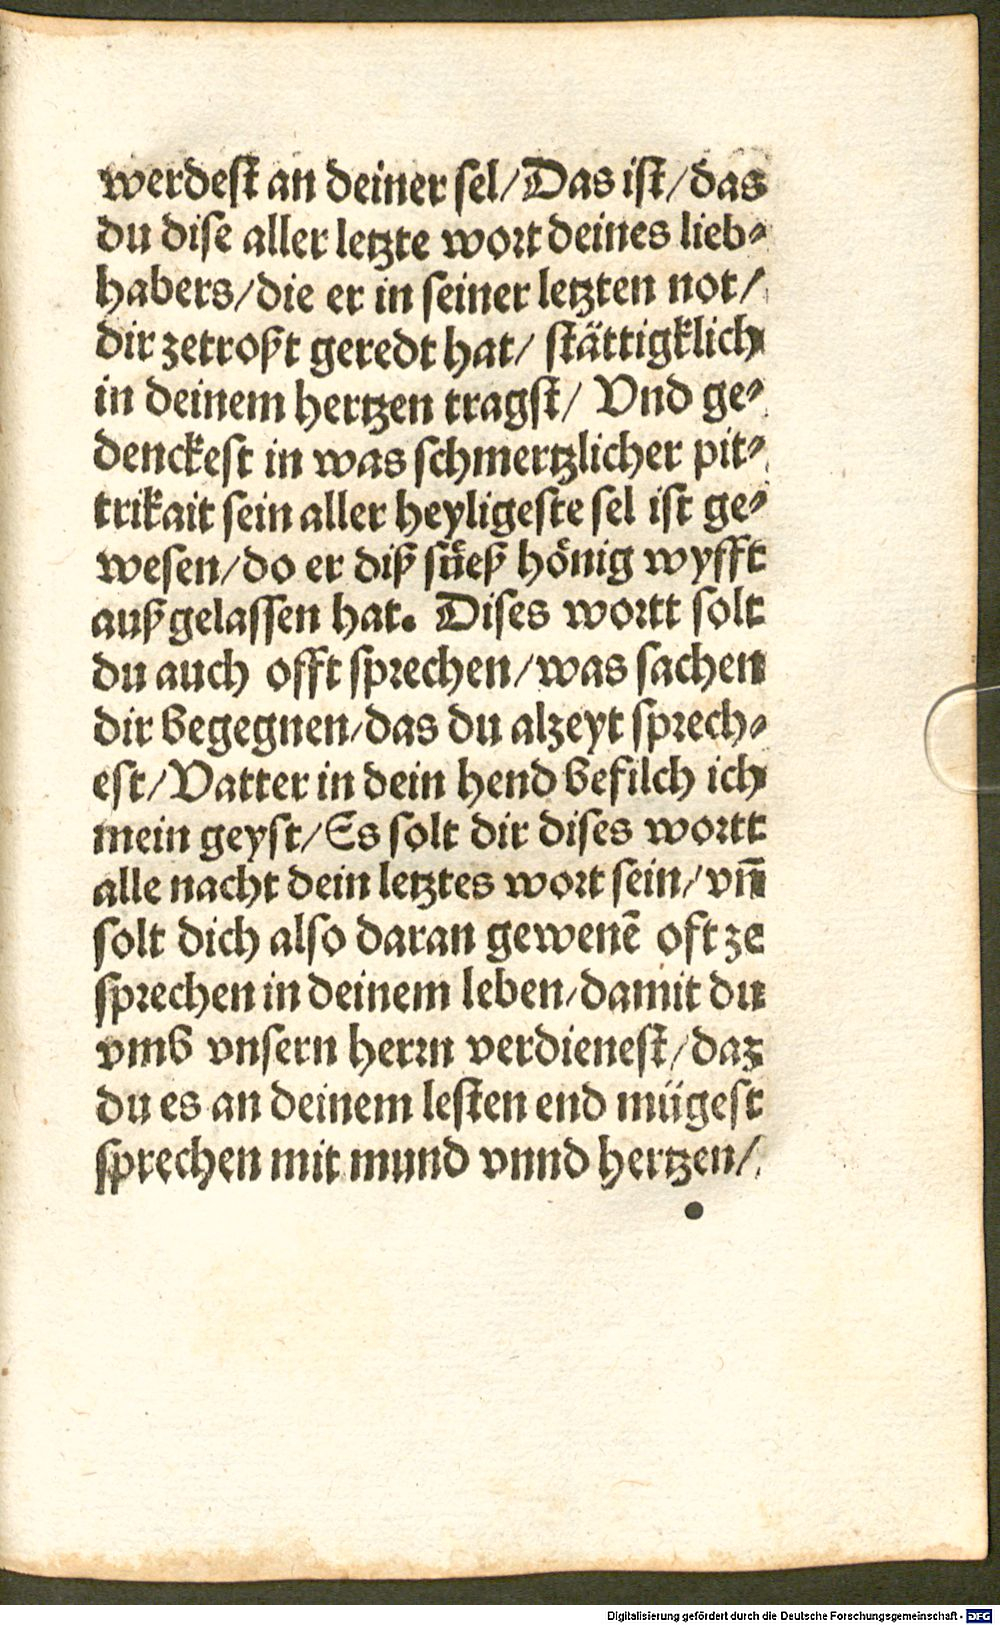 werdest an deiner sel/Das ist/das
du dise aller letzte wort deines lieb⸗
habers/die er in seiner letzten not/
dir zetroßt geredt hat/ stättigklich
in deinem hertzen tragst/ Vnd ge⸗
denckest in was schmertzlicher pit⸗
trikait sein aller heyligeste sel ist ge⸗
wesen/do er diß süeß hönig wyfft
außgelassen hat. Dises wortt solt
du auch offt sprechen/was sachen
dir begegnen/das du alzeyt sprech⸗
est/Vatter in dein hend befilch ich
mein geyst/Es solt dir dises wortt
alle nacht dein letztes wort sein/vn̄
solt dich also daran gewenē oft ze
sprechen in deinem leben/damit du
vmb vnsern herrn verdienest/daz
du es an deinem lesten end mügest
sprechen mit mund vnnd hertzen/
Digitalisierung gefördert durch die Deutsche Forschungsgemeinschaft - DFG